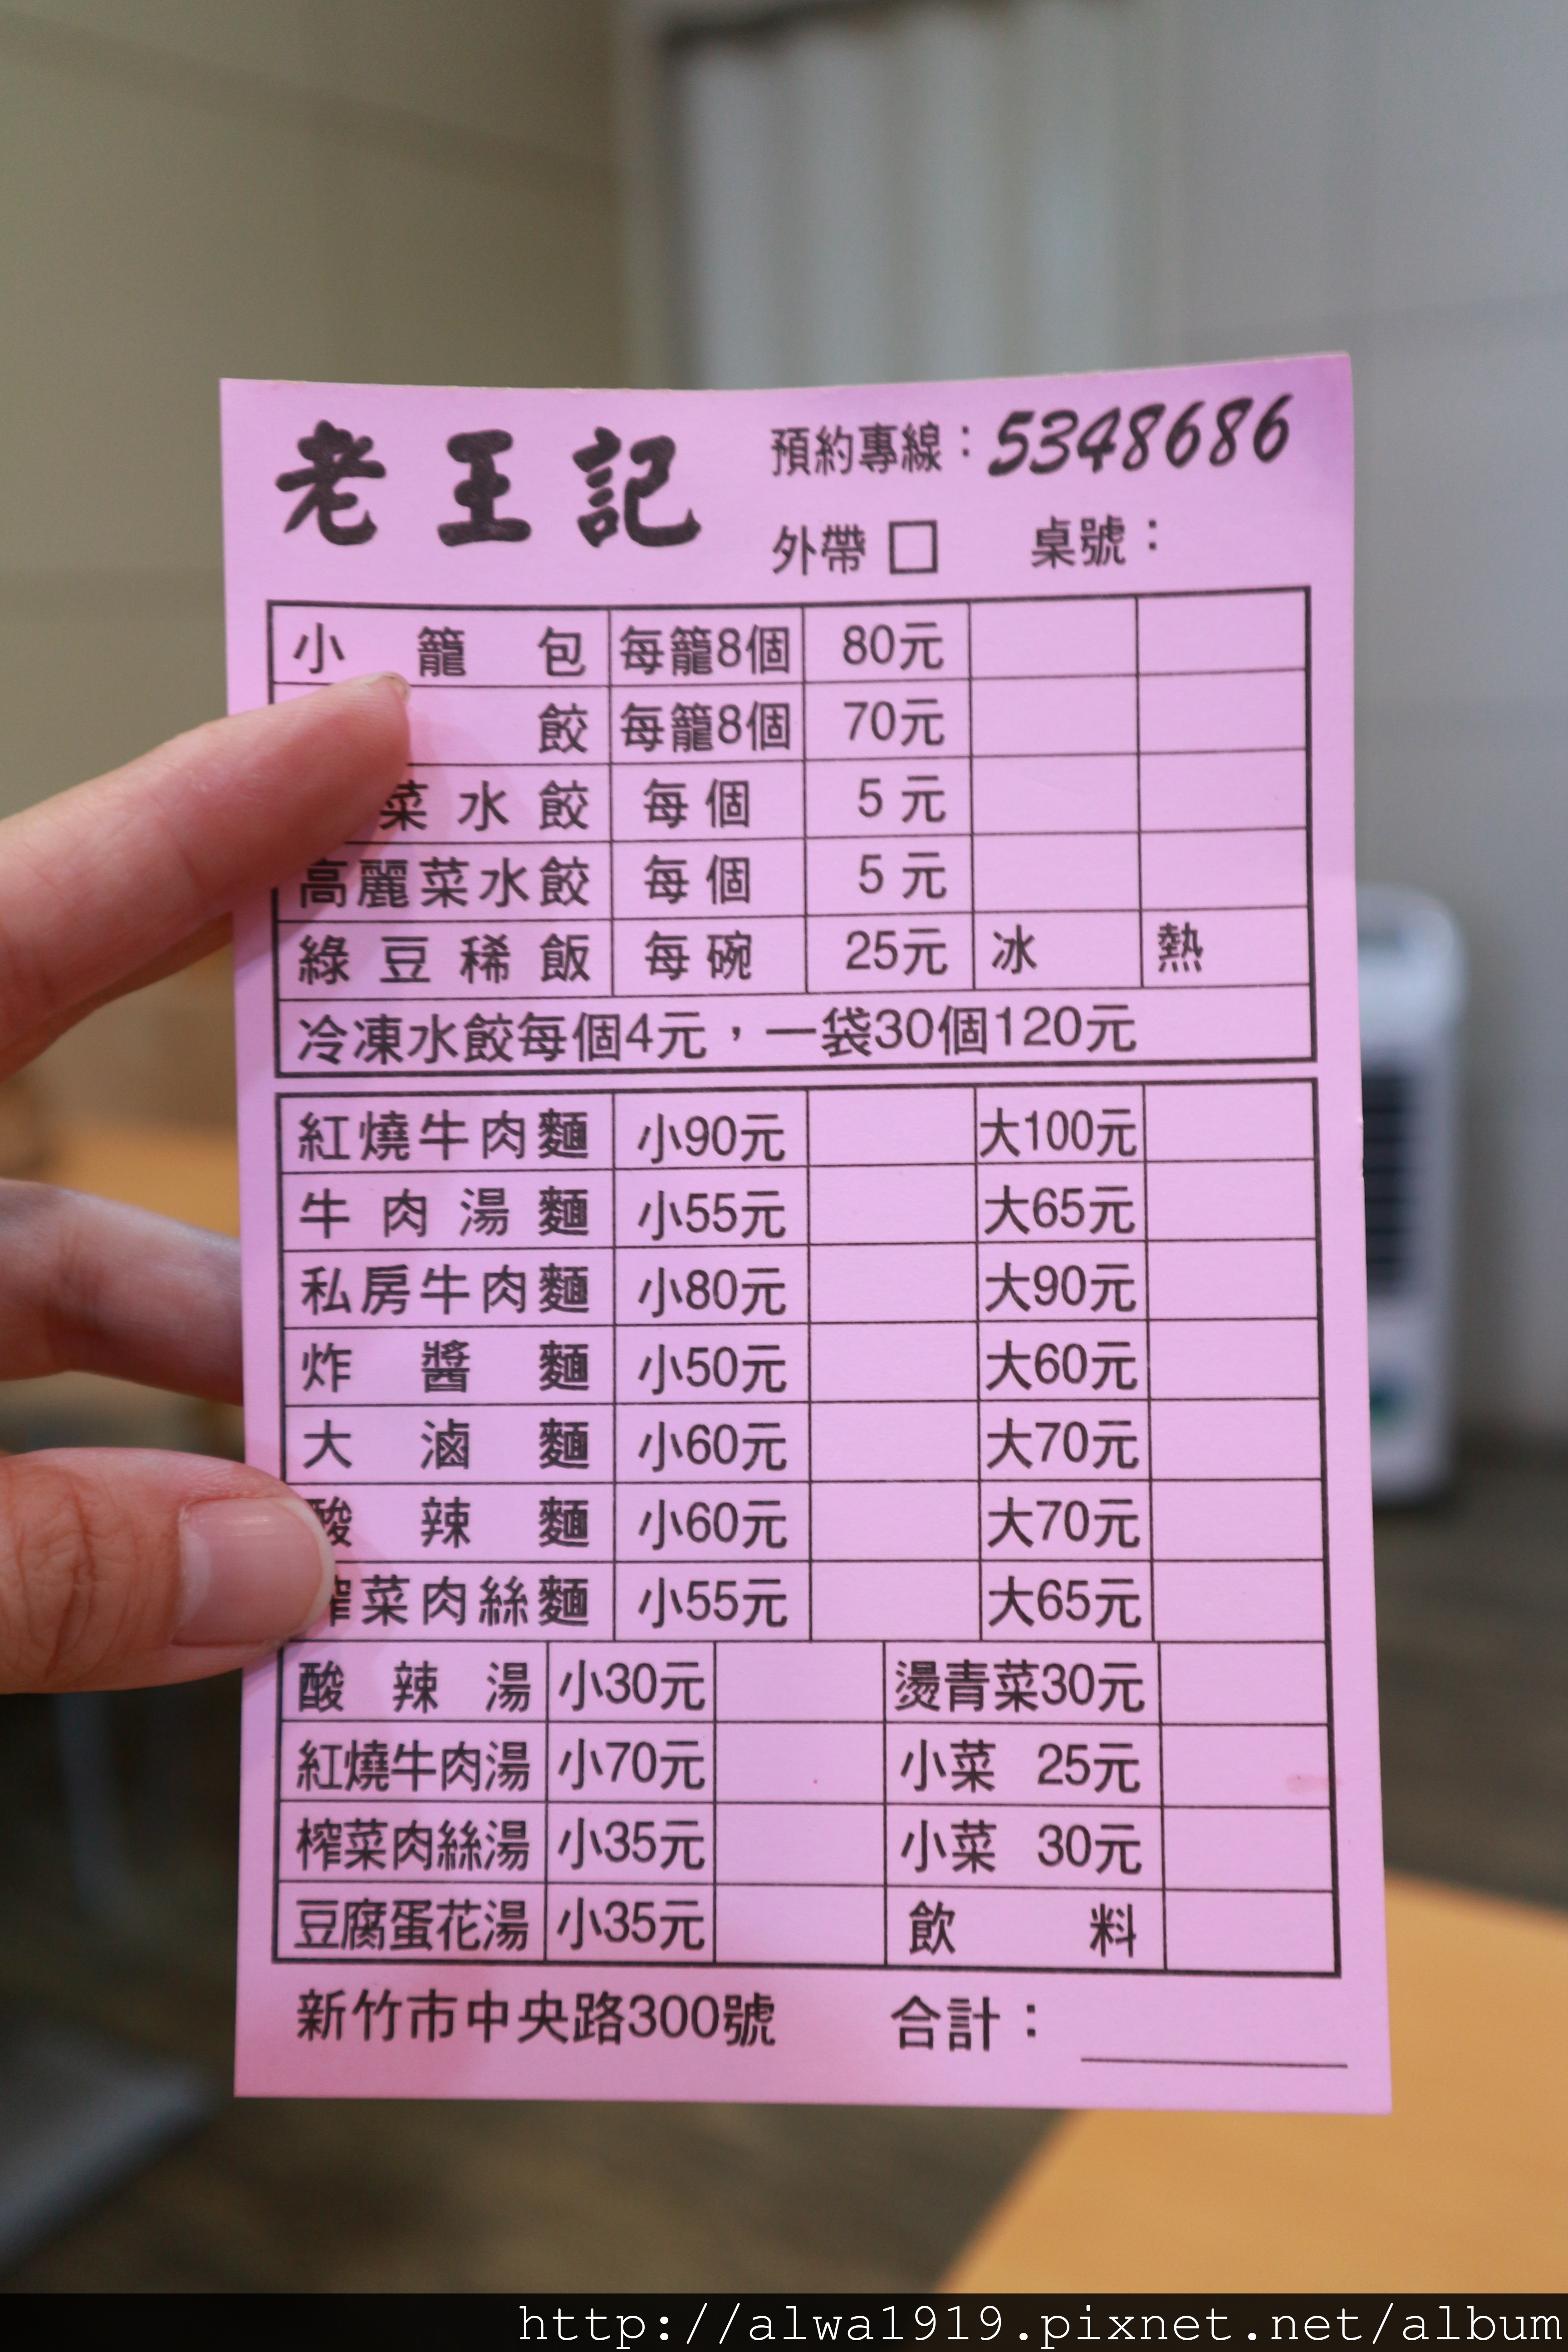 老王記
預約專線：5348686
外帶□ 桌號：
小籠包 每籠8個 80元
餃 每籠8個 70元
菜水餃 每個 5元
高麗菜水餃 每個 5元
綠豆稀飯 每碗 25元 冰 熱
冷凍水餃每個4元，一袋30個120元
紅燒牛肉麵 小90元 大100元
牛肉湯麵 小55元 大65元
私房牛肉麵 小80元 大90元
炸醬麵 小50元 大60元
大滷麵 小60元 大70元
酸辣麵 小60元 大70元
榨菜肉絲麵 小55元 大65元
酸辣湯 小30元 燙青菜30元
紅燒牛肉湯 小70元 小菜 25元
榨菜肉絲湯 小35元 小菜 30元
豆腐蛋花湯 小35元 飲料
新竹市中央路300號 合計：
http://alwa1919.pixnet.net/album